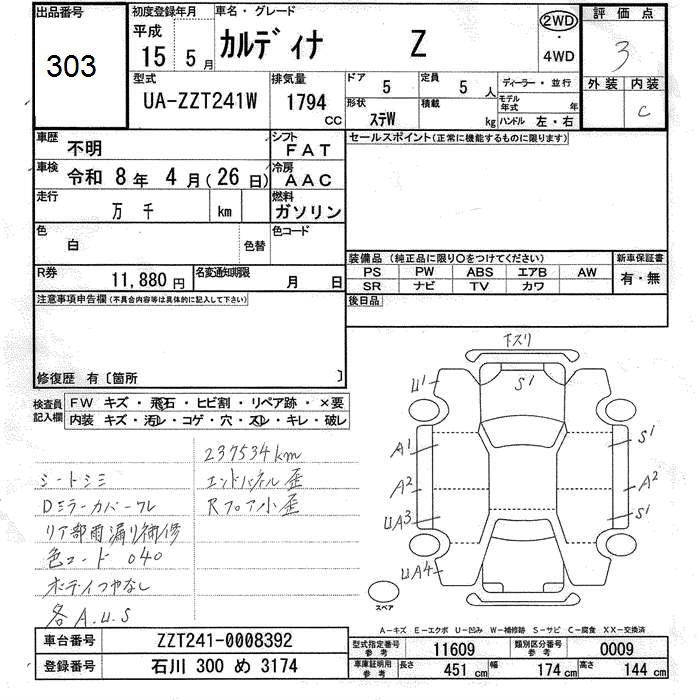 出品番号
303
初度登録年月
平成
15 5月
車名・グレード
カルディナ Z
2WD
・
4WD
評価点
3
外装 内装
C
型式
UA-ZZT241W
排気量
1794 CC
ドア 5
定員 5 人
形状 ステW
積載 kg
ディーラー・並行
モデル年式 年
ハンドル 左・右
車歴 不明
シフト FAT
車検 令和 8年 4月(26日)
冷房 AAC
走行 万 千 km
燃料 ガソリン
色 白 色替
色コード
R券 11,880円
名変通知期限 月 日
セールスポイント(正常に機能するものに限ります)
装備品(純正品に限り○をつけてください)
PS PW ABS エアB AW
SR ナビ TV カワ
新車保証書
有・無
後日品
注意事項申告欄(不具合内容等は具体的に記入して下さい)
修復歴 有〔箇所 〕
検査員記入欄
FW キズ・飛石・ヒビ割・リペア跡・×要
内装 キズ・汚レ・コゲ・穴・スレ・キレ・破レ
237534km
シートシミ エンドパネル歪
Dミラーカバーワレ Rフロア小歪
リア部雨漏り補修
色コード 040
ボディつやなし
各A.U.S
下スリ
U1
S1
A1
S1
A2
A2
UA3
S1
UA4
スペア
A-キズ E-エクボ U-凹み W-補修跡 S-サビ C-腐食 XX-交換済
車台番号 ZZT241-0008392
登録番号 石川 300 め 3174
型式指定番号 参考 11609
類別区分番号 参考 0009
車庫証明用 参考 長さ 451 cm 幅 174 cm 高さ 144 cm